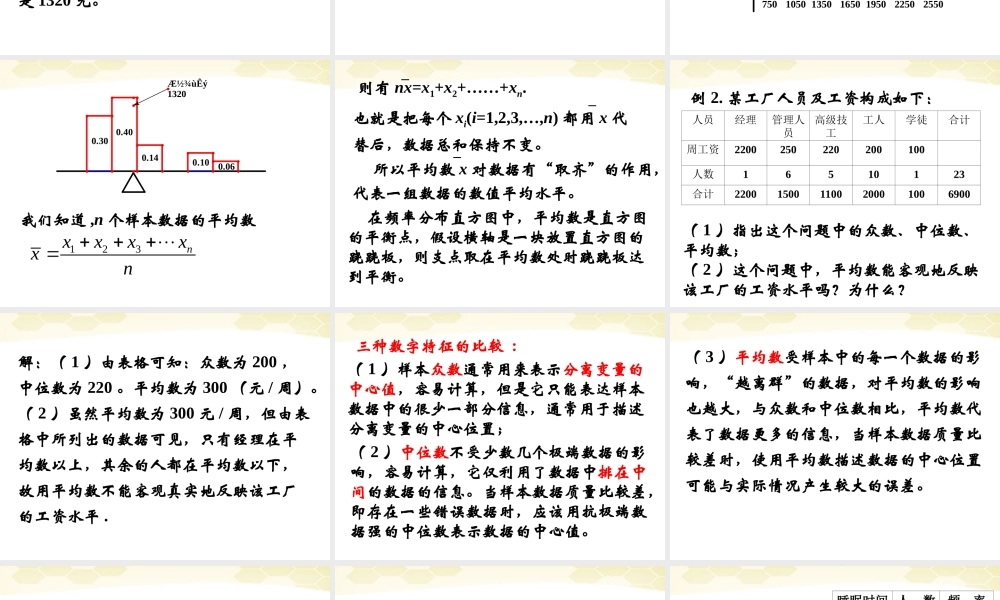 是 1320 元。
750 1050 1350 1650 1950 2250 2550
Æ½¾ùÊý
1320
0.40
0.30
0.14
0.10
0.06
我们知道 ,n 个样本数据的平均数
x̄ = (x₁ + x₂ + x₃ + ⋯ + xₙ) / n
则有 nx̄=x₁+x₂+……+xₙ.
也就是把每个 xᵢ(i=1,2,3,…,n) 都用 x̄ 代
替后，数据总和保持不变。
所以平均数 x̄ 对数据有“取齐”的作用，
代表一组数据的数值平均水平。
在频率分布直方图中，平均数是直方图
的平衡点，假设横轴是一块放置直方图的
跷跷板，则支点取在平均数处时跷跷板达
到平衡。
例 2. 某工厂人员及工资构成如下：
人员 经理 管理人员 高级技工 工人 学徒 合计
周工资 2200 250 220 200 100
人数 1 6 5 10 1 23
合计 2200 1500 1100 2000 100 6900
（ 1 ）指出这个问题中的众数、中位数、
平均数；
（ 2 ）这个问题中，平均数能客观地反映
该工厂的工资水平吗？为什么？
解：（ 1 ）由表格可知：众数为 200 ，
中位数为 220 。平均数为 300 （元 / 周）。
（ 2 ）虽然平均数为 300 元 / 周，但由表
格中所列出的数据可见，只有经理在平
均数以上，其余的人都在平均数以下，
故用平均数不能客观真实地反映该工厂
的工资水平 .
三种数字特征的比较 ：
（ 1 ）样本众数通常用来表示分离变量的
中心值，容易计算，但是它只能表达样本
数据中的很少一部分信息，通常用于描述
分离变量的中心位置；
（ 2 ）中位数不受少数几个极端数据的影
响，容易计算，它仅利用了数据中排在中
间的数据的信息。当样本数据质量比较差，
即存在一些错误数据时，应该用抗极端数
据强的中位数表示数据的中心值。
（ 3 ）平均数受样本中的每一个数据的影
响，“越离群”的数据，对平均数的影响
也越大，与众数和中位数相比，平均数代
表了数据更多的信息，当样本数据质量比
较差时，使用平均数描述数据的中心位置
可能与实际情况产生较大的误差。
睡眠时间 人 数 频 率